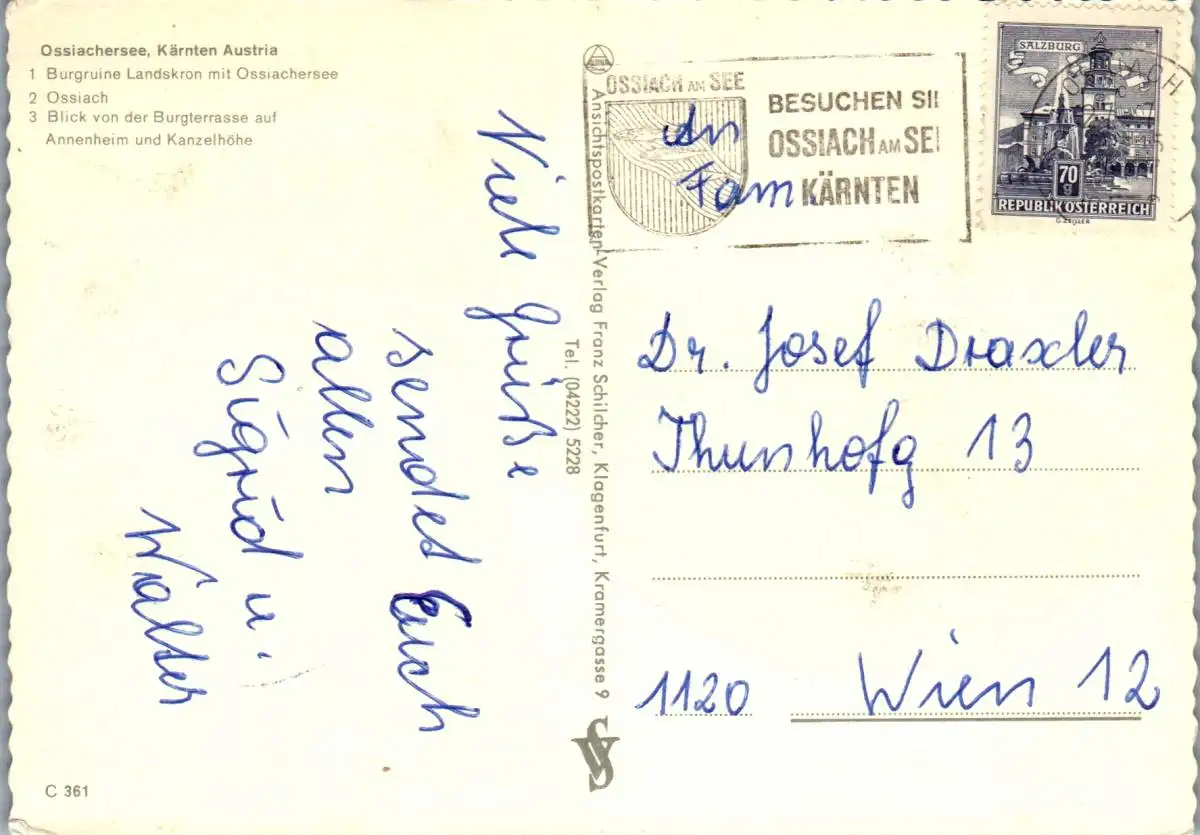 Ossiachersee, Kärnten Austria
1 Burgruine Landskron mit Ossiachersee
2 Ossiach
3 Blick von der Burgterrasse auf
Annenheim und Kanzelhöhe
Viele Grüße
sendet Euch
allen
Sigrid u.
Walter
C 361
Ansichtspostkarten-Verlag Franz Schilcher, Klagenfurt, Kramergasse 9
Tel. (04222) 5228
OSSIACH AM SEE
BESUCHEN SI
OSSIACH AM SE
KÄRNTEN
SALZBURG
70
g
REPUBLIK ÖSTERREICH
G. ZEILLER
An
Fam.
Dr. Josef Draxler
Thunhofg 13
1120 Wien 12